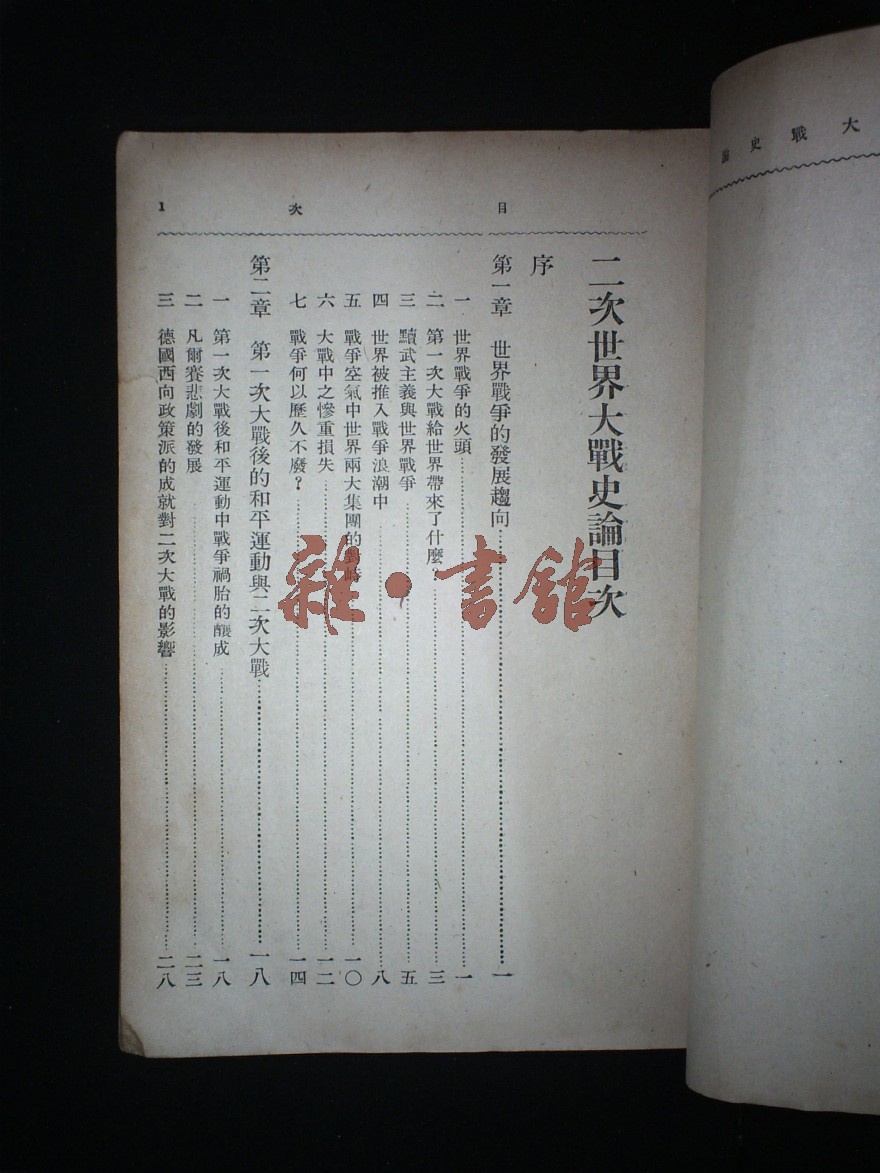 大戰史論
目次 1
二次世界大戰史論目次
序
第一章 世界戰爭的發展趨向……一
一 世界戰爭的火頭……一
二 第一次大戰給世界帶來了什麼?……三
三 黷武主義與世界戰爭……五
四 世界被推入戰爭浪潮中……八
五 戰爭空氣中世界兩大集團的對峙……一〇
六 大戰中之慘重損失……一二
七 戰爭何以歷久不廢?……一四
第二章 第一次大戰後的和平運動與二次大戰……一八
一 第一次大戰後和平運動中戰爭禍胎的釀成……一八
二 凡爾賽悲劇的發展……二三
三 德國西向政策派的成就對二次大戰的影響……二八
雜·書館